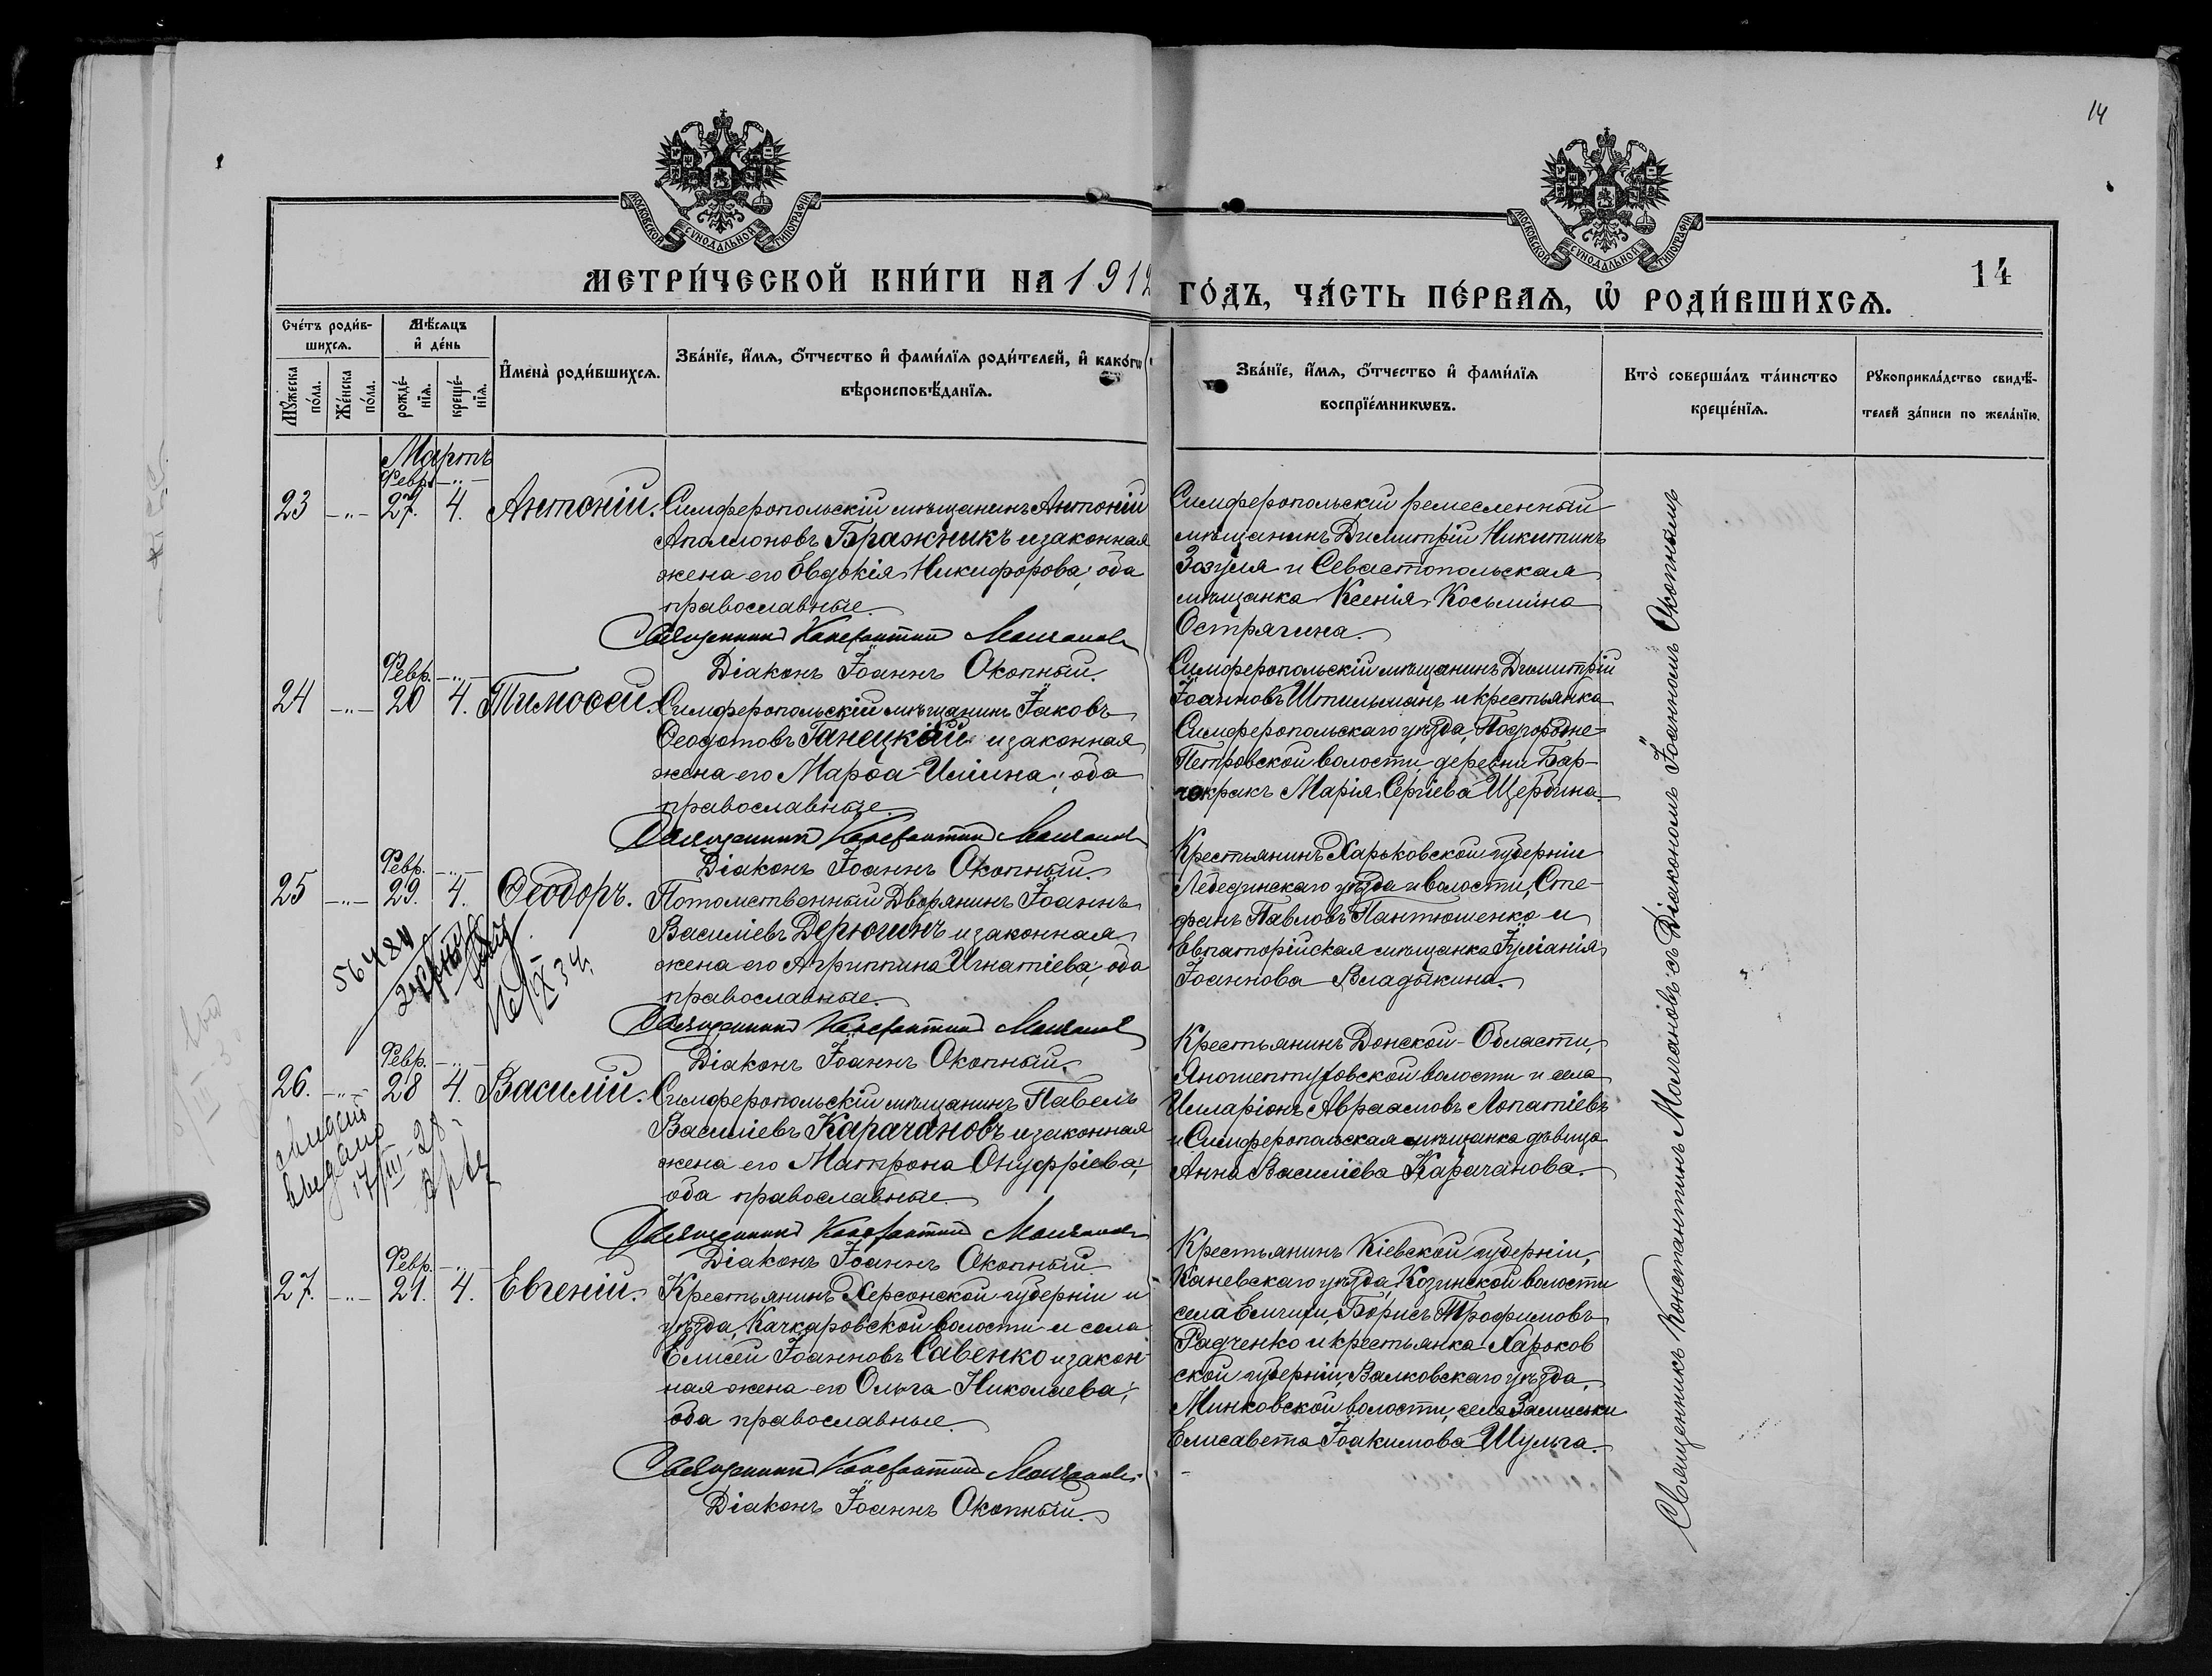 14
МОСКОВСКОЙ СѴНОДАЛЬНОЙ ТИПОГРАФІИ
МОСКОВСКОЙ СѴНОДАЛЬНОЙ ТИПОГРАФІИ
МЕТРИ́ЧЕСКОЙ КНИ́ГИ НА 1912
ГО́ДЪ, ЧА́СТЬ ПЕ́РВАЯ, Ѿ РОДИ́ВШИХСЯ.
14
Сче́тъ роди́в-
шихся.
Мѣ́сяцъ
и҆ де́нь
Мꙋ́жеска
по́ла.
Же́нска
по́ла.
рожде́-
нїя.
креще́-
нїя.
И҆мена̀ роди́вшихся.
Зва́нїе, и҆́мя, ѻ҆́тчество и҆ фами́лїя роди́телей, и҆ како́гѡ
вѣроисповѣ́данїя.
Зва́нїе, и҆́мя, ѻ҆́тчество и҆ фами́лїя
воспрїе́мникѡвъ.
Кто̀ соверша́лъ та́инство
креще́нїя.
Рꙋкоприкла́дство свидѣ́-
телей за́писи по жела́нїю.
Мартъ
Февр.
23 -„- 27. 4. Антоній.
Симферопольскій мѣщанинъ Антоній
Аполлоновъ Бражникъ и законная
жена его Евдокія Никифорова; оба
православные.
Священникъ Константинъ Молчановъ
Діаконъ Іоаннъ Окопный.
Симферопольскій ремесленный
мѣщанинъ Димитрій Никитинъ
Зозуля и Севастопольская
мѣщанка Ксенія Косьмина
Острягина.
Февр.
24 -„- 20 4. Тимоѳей.
Симферопольскій мѣщанинъ Іаковъ
Ѳеодотовъ Ганецкій и законная
жена его Марѳа Иліина; оба
православные
Священникъ Константинъ Молчановъ
Діаконъ Іоаннъ Окопный.
Симферопольскій мѣщанинъ Димитрій
Іоанновъ Штильманъ и крестьянка
Симферопольскаго уѣзда, Подгородне-
Петровской волости деревни Бар-
чокракъ Марія Сергіева Щербина.
Февр.
25 -„- 29. 4. Ѳеодоръ.
Потомственный Дворянинъ Іоаннъ
Василіевъ Дерюгинъ и законная
жена его Агриппина Игнатіева; оба
православные.
Священникъ Константинъ Молчановъ
Діаконъ Іоаннъ Окопный.
Крестьянинъ Харьковской губерніи
Лебединскаго уѣзда и волости, Сте-
фанъ Павловъ Пантюшенко и
Евпаторійская мѣщанка Іуліанія
Іоаннова Владыкина.
56484
16/IX 34.
Февр.
26. -„- 28 4. Василій.
Симферопольскій мѣщанинъ Павелъ
Василіевъ Карачановъ и законная
жена его Матрона Онуфріева;
оба православные.
Священникъ Константинъ Молчановъ
Діаконъ Іоаннъ Окопный
Крестьянинъ Донской Области,
волости и села
Иларіонъ Авраамовъ Лопатіевъ
и Симферопольская мѣщанка дѣвица
Анна Василіева Карачанова.
17/III-28.
Февр.
27. -„- 21. 4. Евгеній.
Крестьянинъ Херсонской губерніи и
уѣзда, Качкаровской волости и села
Елисей Іоанновъ Савенко и закон-
ная жена его Ольга Николаева;
оба православные.
Священникъ Константинъ Молчановъ
Діаконъ Іоаннъ Окопный.
Крестьянинъ Кіевской губерніи,
Каневскаго уѣзда, Козинской волости
села Борисъ Трофимовъ
Радченко и крестьянка Харьков
ской губерніи, Валковскаго уѣзда,
Минковской волости, села
Елисавета Іоакимова Шульга.
Священникъ Константинъ Молчановъ съ Діакономъ Іоанномъ Окопнымъ